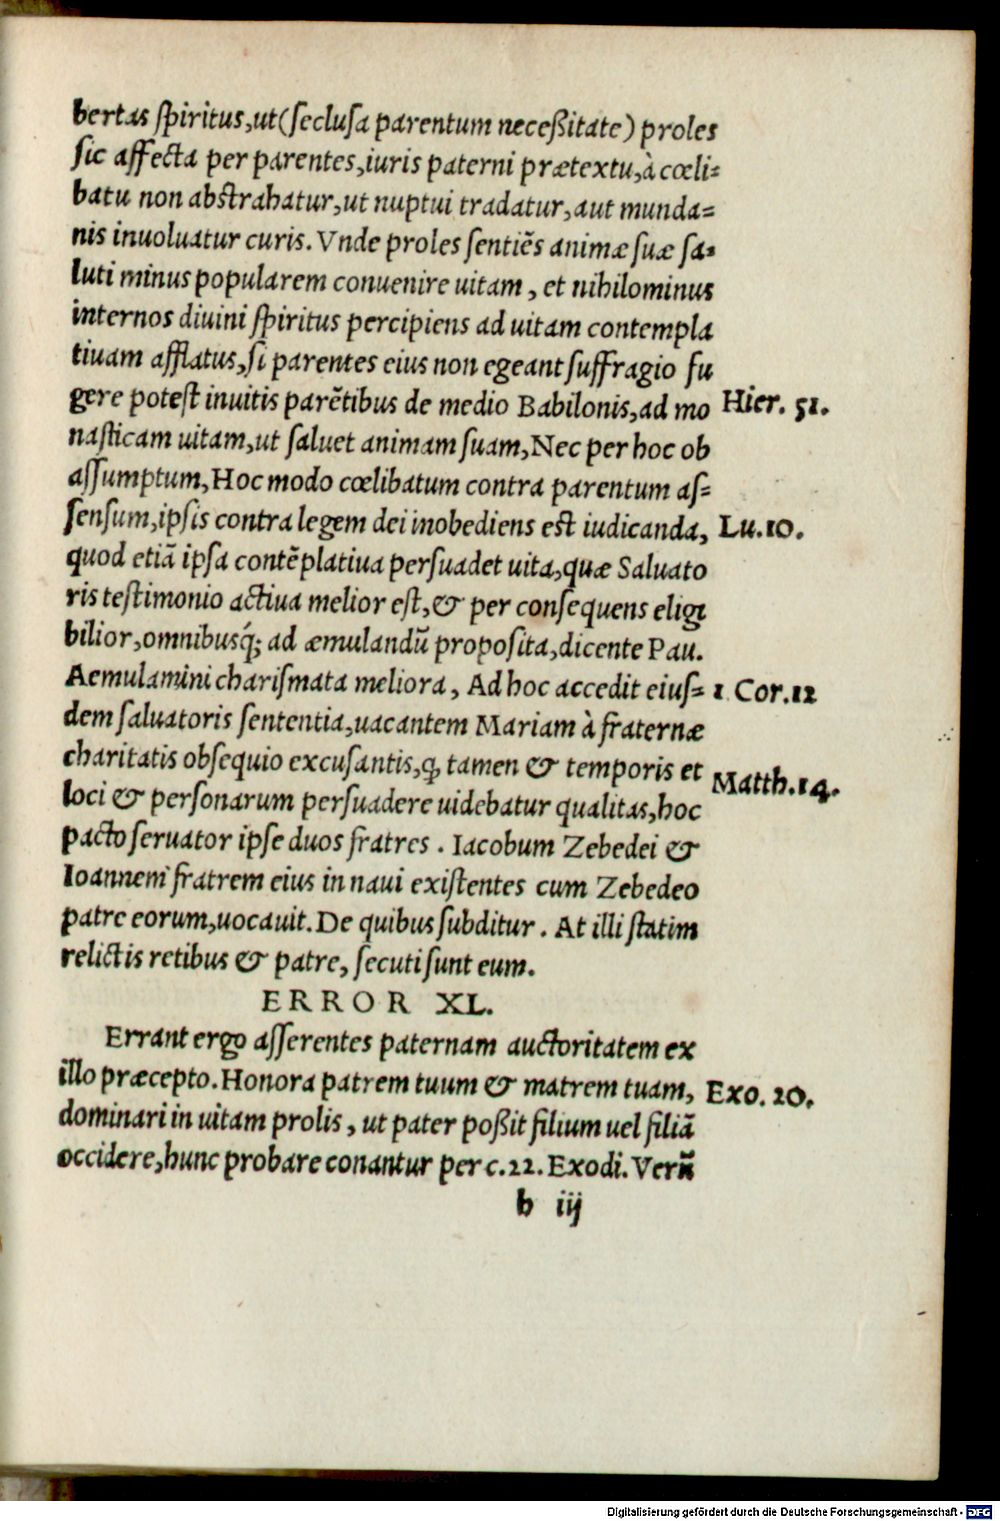 bertas spiritus,ut(seclusa parentum neceßitate) proles
sic affecta per parentes,iuris paterni prætextu,à cœli=
batu non abstrahatur,ut nuptui tradatur,aut munda=
nis inuoluatur curis. Vnde proles sentiẽs animæ suæ sa=
luti minus popularem conuenire uitam , et nihilominus
internos diuini spiritus percipiens ad uitam contempla
tiuam afflatus,si parentes eius non egeant suffragio fu
gere potest inuitis parẽtibus de medio Babilonis,ad mo Hier. 51.
nasticam uitam,ut saluet animam suam,Nec per hoc ob
assumptum,Hoc modo cœlibatum contra parentum as=
sensum,ipsis contra legem dei inobediens est iudicanda, Lu.10.
quod etiã ipsa contẽplatiua persuadet uita,quæ Saluato
ris testimonio actiua melior est,& per consequens eligi
bilior,omnibusq́; ad æmulandũ proposita,dicente Pau.
Aemulamini charismata meliora , Ad hoc accedit eius= 1 Cor.12
dem saluatoris sententia,uacantem Mariam à fraternæ
charitatis obsequio excusantis,ꝙ tamen & temporis et Matth.14.
loci & personarum persuadere uidebatur qualitas,hoc
pacto seruator ipse duos fratres . Iacobum Zebedei &
Ioannem fratrem eius in naui existentes cum Zebedeo
patre eorum,uocauit. De quibus subditur . At illi statim
relictis retibus & patre, secuti sunt eum.
ERROR XL.
Errant ergo asserentes paternam auctoritatem ex
illo præcepto. Honora patrem tuum & matrem tuam, Exo. 20.
dominari in uitam prolis , ut pater poßit filium uel filiã
occidere,hunc probare conantur per c.22. Exodi. Verũ
b iij
Digitalisierung gefördert durch die Deutsche Forschungsgemeinschaft - DFG